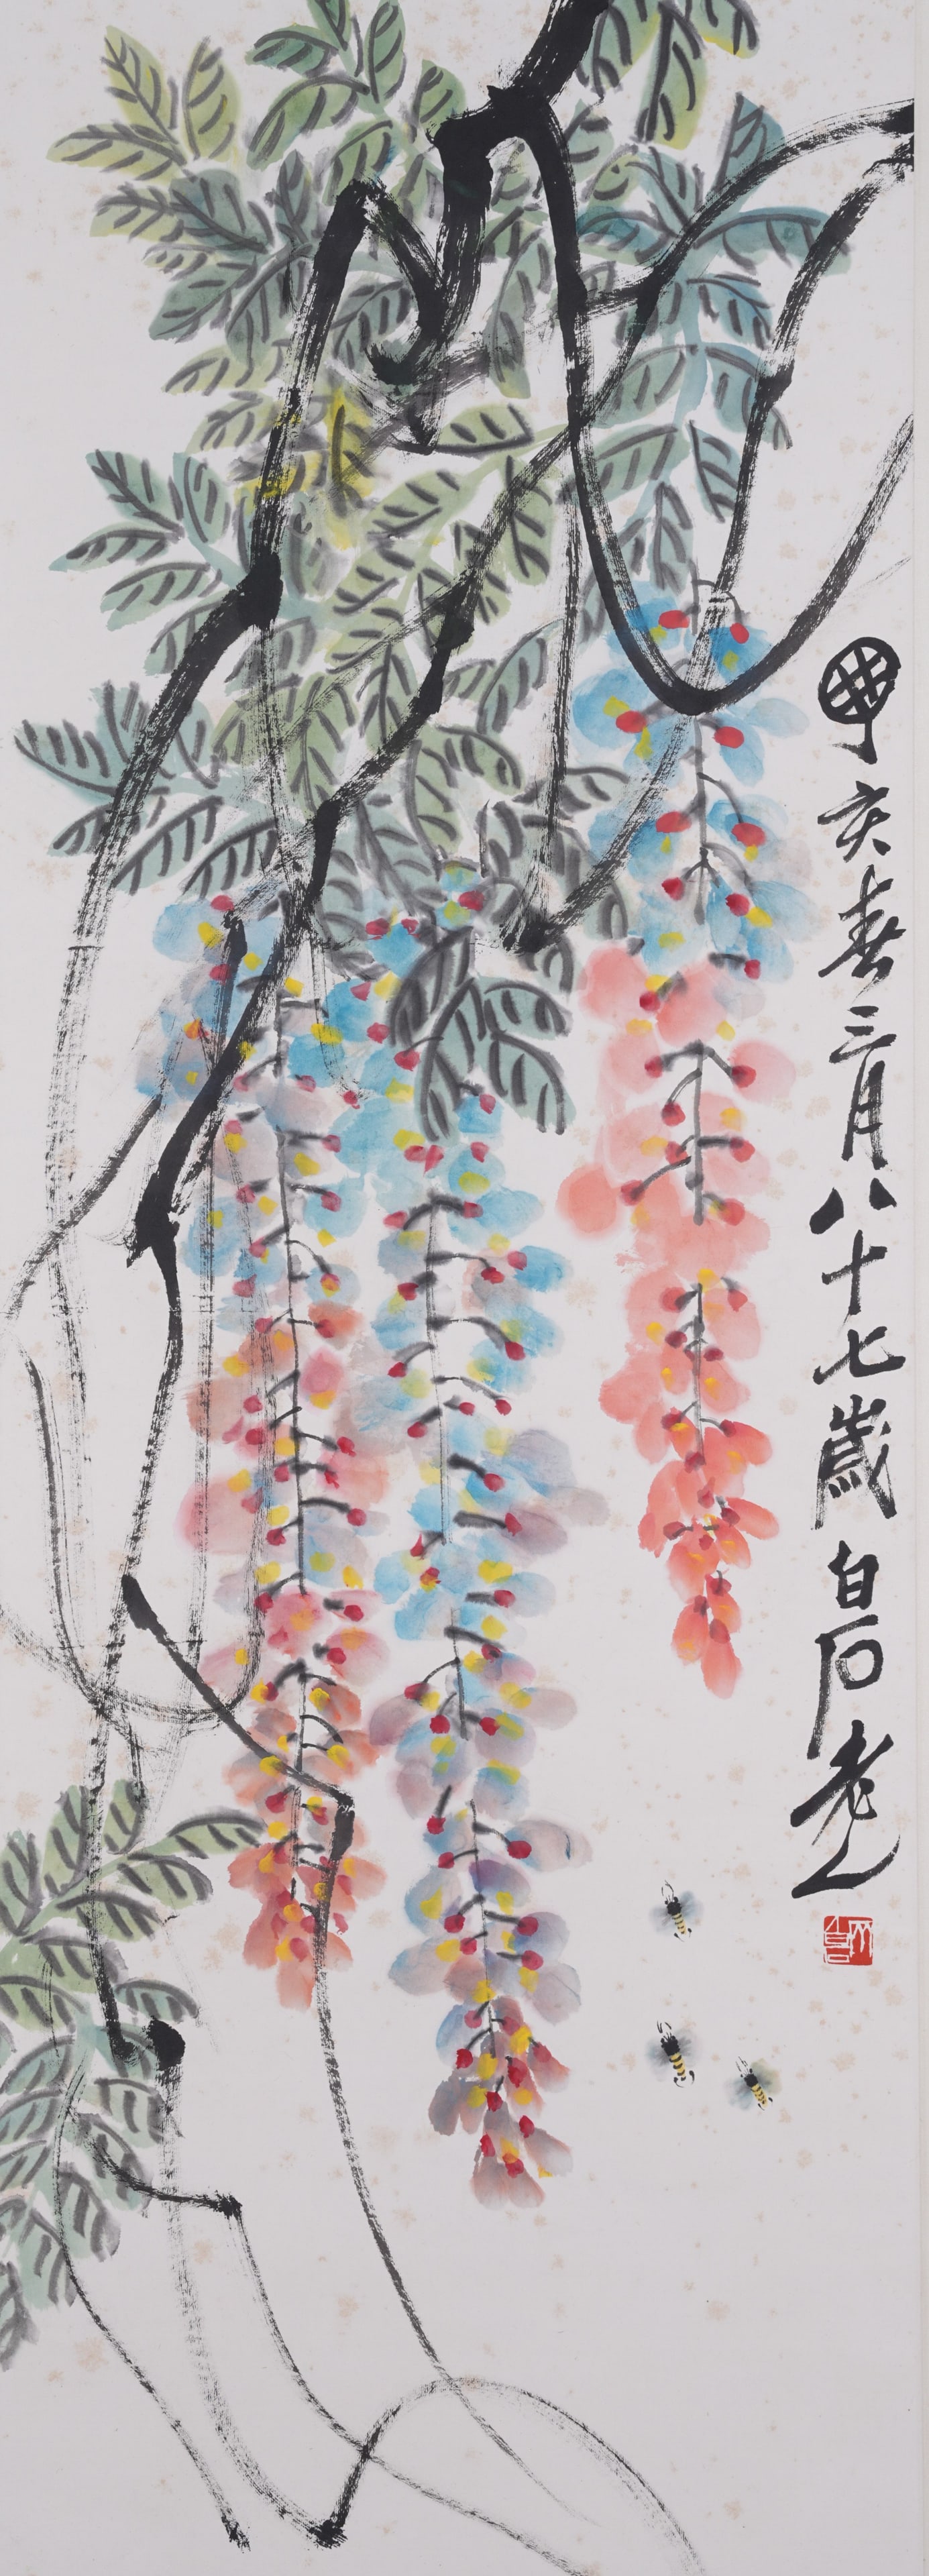 亥春三月八十七歲白石老人